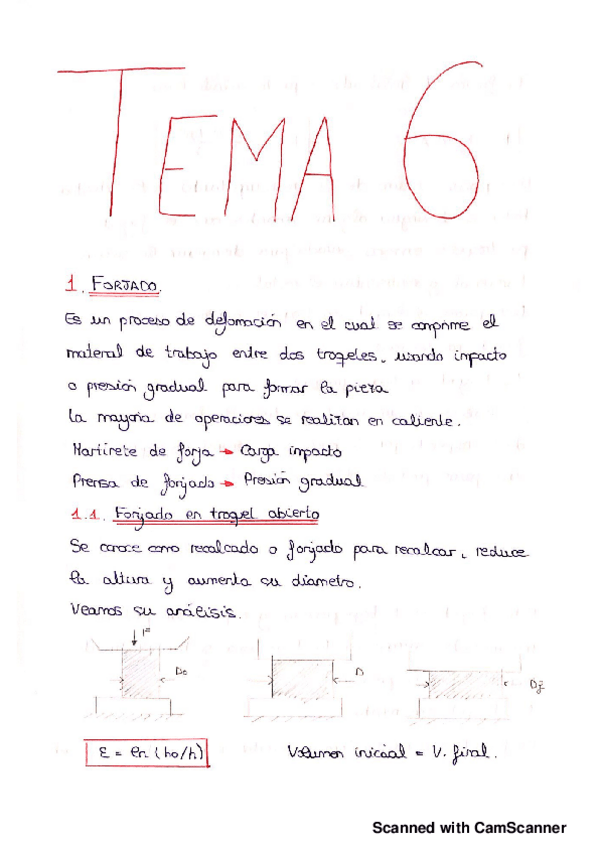 TEMA 6
1. FORJADO.
Es un proceso de deformación en el cual se comprime el
material de trabajo entre dos troqeles, usando inpacto
o presión gradual para formar la pieza
La mayoria de operaciones se realizan en caliente.
Martinete de forja → Carga inpacto
Prensa de forjado → Presión gradual
1.1. Forjado en troqel abierto
Se conoce como recalcado o forjado para recalcar, reduce
la altura y aumenta su diametro.
Veamos su análisis.
F
Do
D
Df
ε = ln (ho/h)
Volumen inicial = V. final.
Scanned with CamScanner